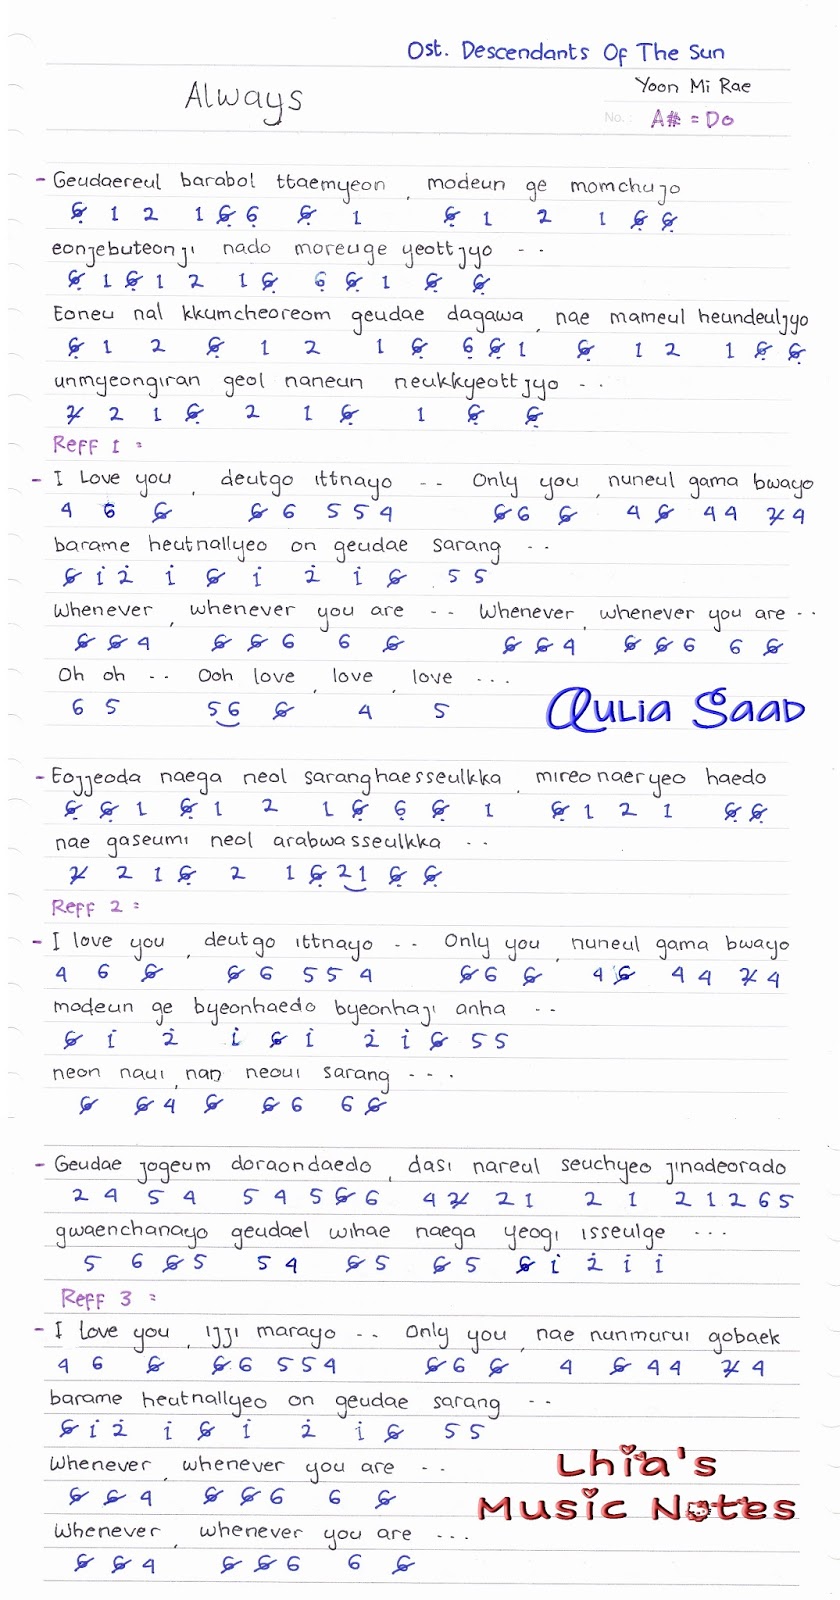 Ost. Descendants Of The Sun
Always
Yoon Mi Rae
No. : A# = Do
- Geudaereul barabol ttaemyeon , modeun ge momchujo
6̸̣ 1 2 1 6̸̣ 6̣ 6̸̣ 1 6̸̣ 1 2 1 6̸̣ 6̸̣
eonjebuteonji nado moreuge yeottjyo - -
6̸̣ 1 6̸̣ 1 2 1 6̸̣ 6̣ 6̸̣ 1 6̸̣ 6̸̣
Eoneu nal kkumcheoreom geudae dagawa , nae mameul heundeuljyo
6̸̣ 1 2 6̸̣ 1 2 1 6̸̣ 6̣ 6̸̣ 1 6̸̣ 1 2 1 6̸̣ 6̸̣
unmyeongiran geol naneun neukkyeottjyo - -
2̸ 2 1 6̸̣ 2 1 6̸̣ 1 6̸̣ 6̸̣
Reff 1 :
- I Love you , deutgo ittnayo -- Only you , nuneul gama bwayo
4 6 6̸ 6̸ 6 5 5 4 6̸ 6 6̸ 4 6̸ 4 4 2̸ 4
barame heutnallyeo on geudae sarang - -
6̸ 1̇ 2̇ 1̇ 6̸ 1̇ 2̇ 1̇ 6̸ 5 5
Whenever , whenever you are -- Whenever , whenever you are - -
6̸ 6̸ 4 6̸ 6̸ 6 6 6̸ 6̸ 6̸ 4 6̸ 6̸ 6 6 6̸
Oh oh -- Ooh love , love , love ...
6 5 5 6 6̸ 4 5
Aulia Saad
- Eojjeoda naega neol saranghaesseulkka , mireonaeryeo haedo
6̸̣ 6̸̣ 1 6̸̣ 1 2 1 6̸̣ 6̣ 6̸̣ 1 6̸̣ 1 2 1 6̸̣ 6̸̣
nae gaseumi neol arabwasseulkka - -
2̸ 2 1 6̸̣ 2 1 6̸̣ 2 1 6̸̣ 6̸̣
Reff 2 :
- I love you , deutgo ittnayo -- Only you , nuneul gama bwayo
4 6 6̸ 6̸ 6 5 5 4 6̸ 6 6̸ 4 6̸ 4 4 2̸ 4
modeun ge byeonhaedo byeonhaji anha - -
6̸ 1̇ 2̇ 1̇ 6̸ 1̇ 2̇ 1̇ 6̸ 5 5
neon naui , nan neoui sarang - - -
6̸ 6̸ 4 6̸ 6̸ 6 6 6̸
- Geudae jogeum doraondaedo , dasi nareul seuchyeo jinadeorado
2 4 5 4 5 4 5 6̸ 6 4 2̸ 2 1 2 1 2 1 2 6 5
gwaenchanayo geudael wihae naega yeogi isseulge ...
5 6 6̸ 5 5 4 6̸ 5 6̸ 5 6̸ 1̇ 2̇ 1̇ 1̇
Reff 3 :
- I love you , ijji marayo -- Only you , nae nunmurui gobaek
4 6 6̸ 6̸ 6 5 5 4 6̸ 6 6̸ 4 6̸ 4 4 2̸ 4
barame heutnallyeo on geudae sarang - -
6̸ 1̇ 2̇ 1̇ 6̸ 1̇ 2̇ 1̇ 6̸ 5 5
Whenever , whenever you are - -
6̸ 6̸ 4 6̸ 6̸ 6 6 6̸
Lhia's
Music Notes
Whenever , whenever you are ...
6̸ 6̸ 4 6̸ 6̸ 6 6 6̸